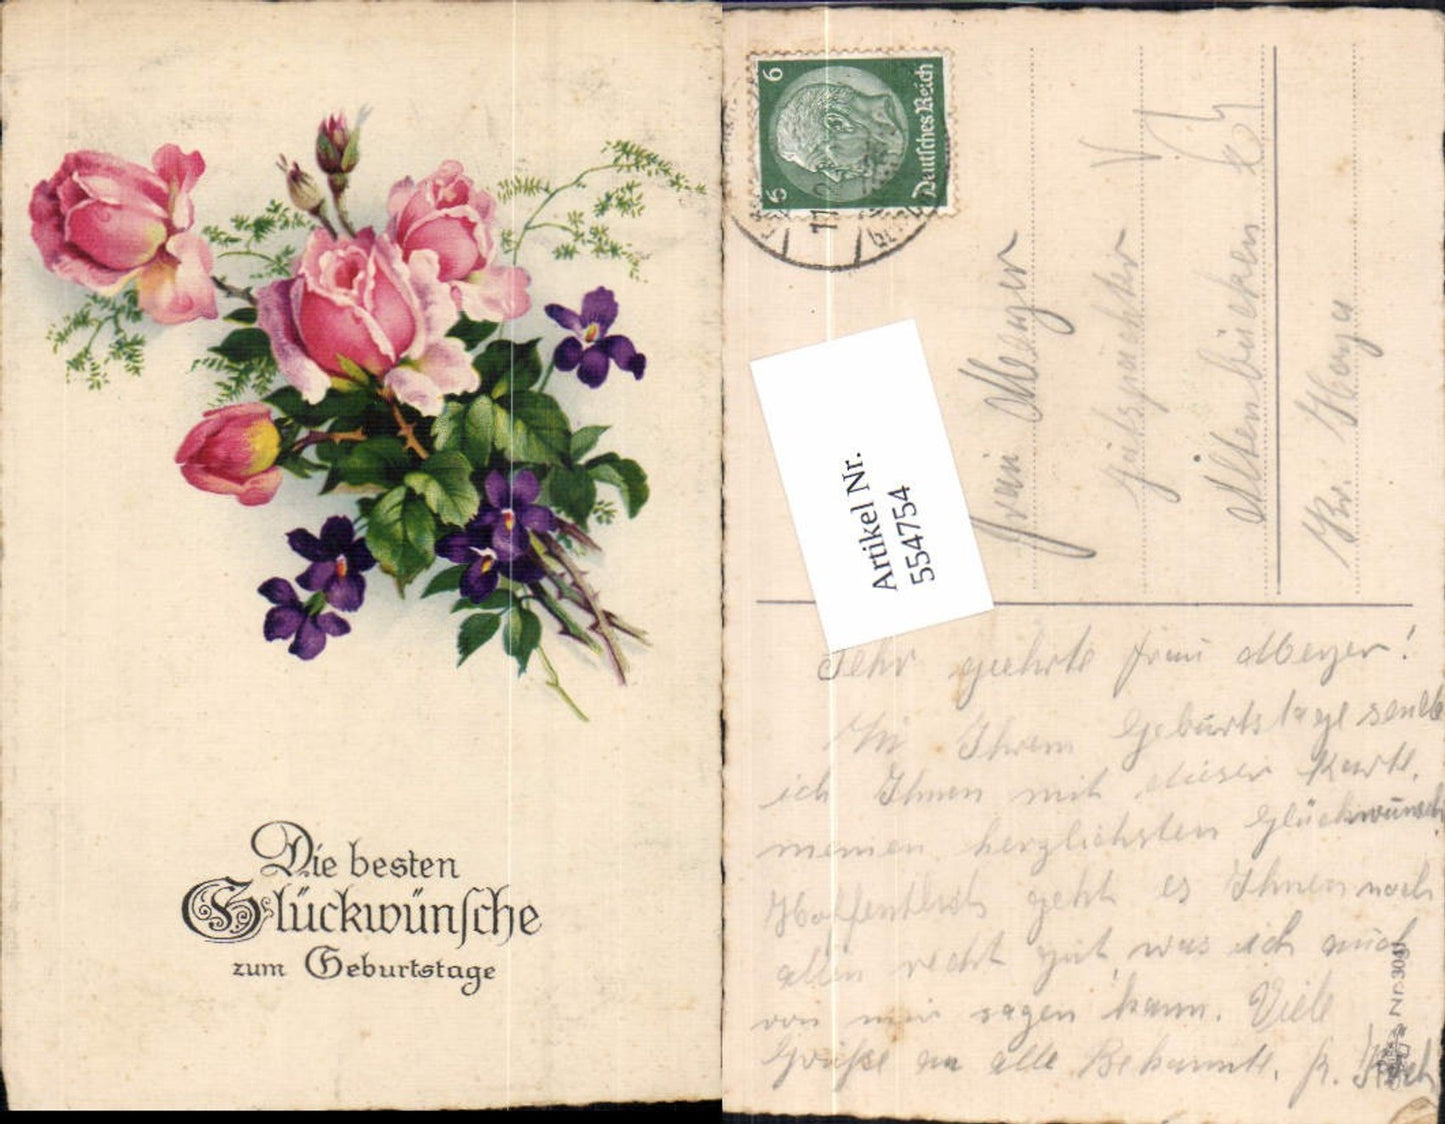 Die besten
Glückwünsche
zum Geburtstage
Deutsches Reich
6
5
Artikel Nr.
554754
Frau Meyer
Gutspächter
Altenbücken
Br. Hoya
Sehr geehrte Frau Meyer!
Zu Ihrem Geburtstage sende
ich Ihnen mit dieser Karte
meinen herzlichsten Glückwunsch
Hoffentlich geht es Ihnen noch
allen recht gut was ich auch
von mir sagen kann. Viele
Grüße an alle Bekannte. Fr. Koch
Nr. 3041